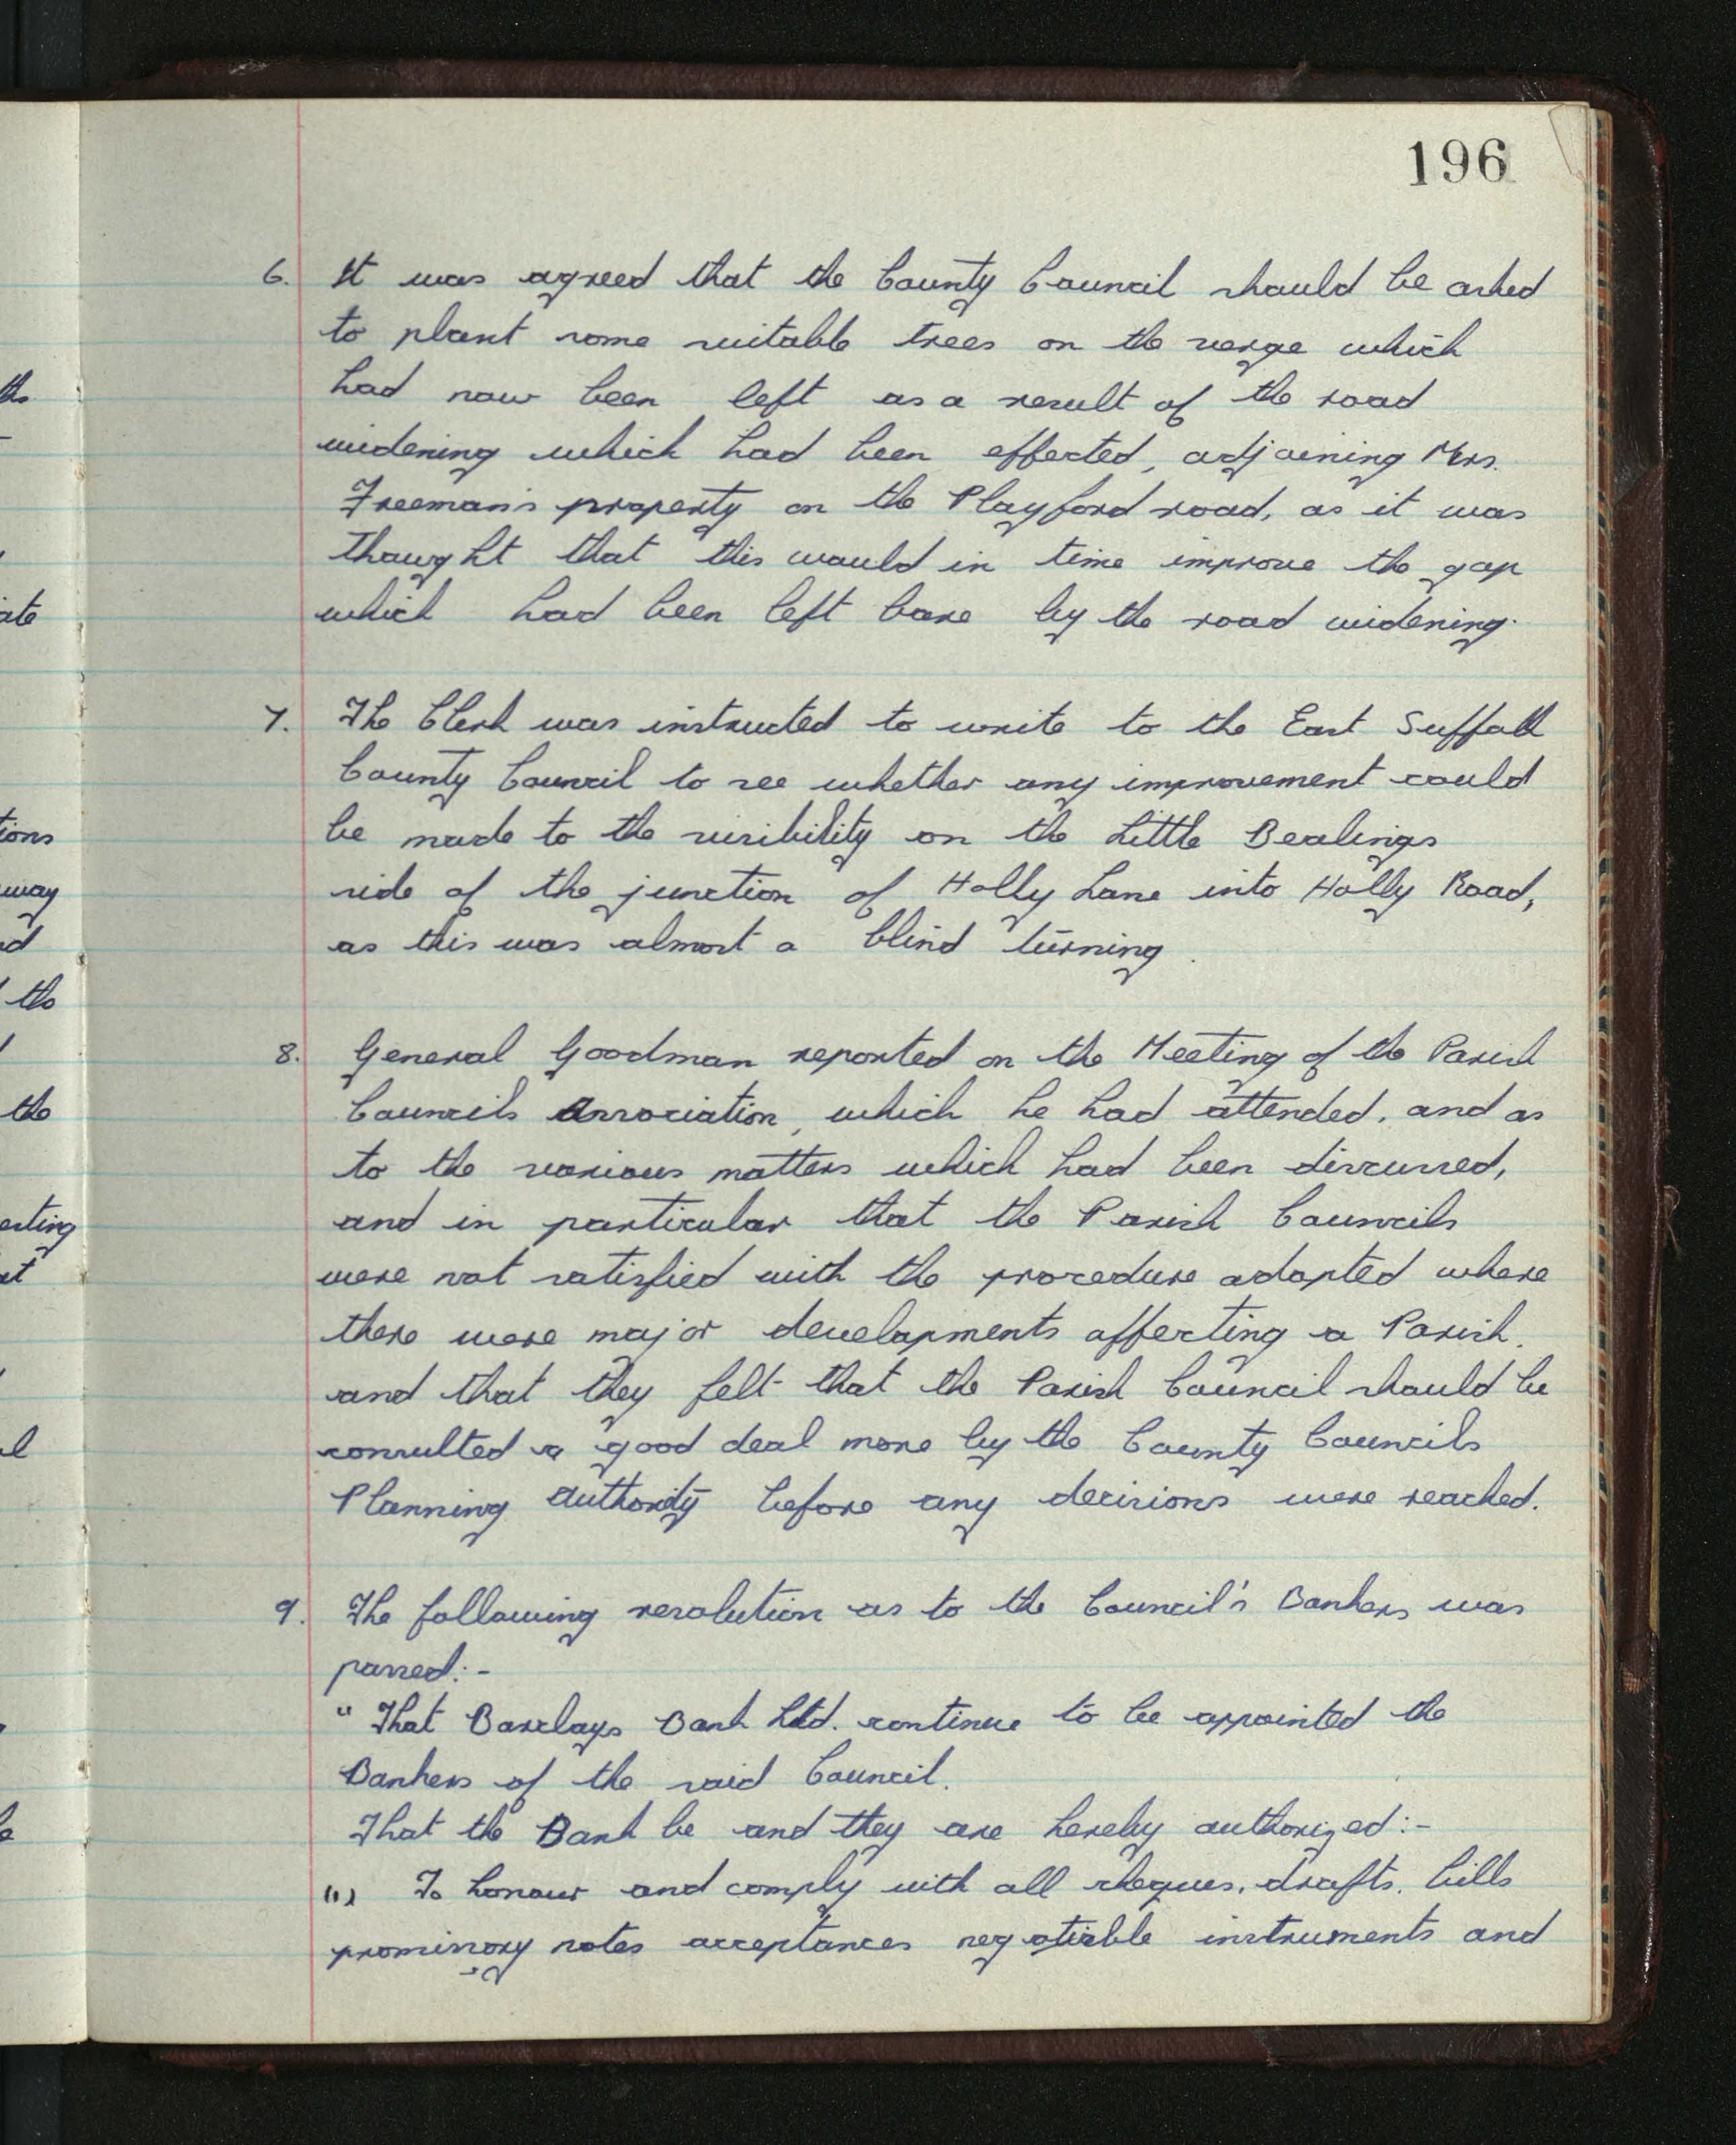 196
6. It was agreed that the County Council should be asked
to plant some suitable trees on the verge which
had now been left as a result of the road
widening which had been effected, adjoining Mrs.
Freeman's property on the Playford road, as it was
thought that this would in time improve the gap
which had been left bare by the road widening.
7. The Clerk was instructed to write to the East Suffolk
County Council to see whether any improvement could
be made to the visibility on the Little Bealings
side of the junction of Holly Lane into Holly Road,
as this was almost a blind turning.
8. General Goodman reported on the Meeting of the Parish
Councils Association, which he had attended, and as
to the various matters which had been discussed,
and in particular that the Parish Councils
were not satisfied with the procedure adopted where
there were major developments affecting a Parish.
and that they felt that the Parish Council should be
consulted a good deal more by the County Councils
Planning Authority before any decisions were reached.
9. The following resolution as to the Council's Bankers was
passed:-
"That Barclays Bank Ltd. continue to be appointed the
Bankers of the said Council.
That the Bank be and they are hereby authorized:-
(1) To honour and comply with all cheques, drafts, bills
promissory notes acceptances negotiable instruments and
the
ate
tions
way
the
the